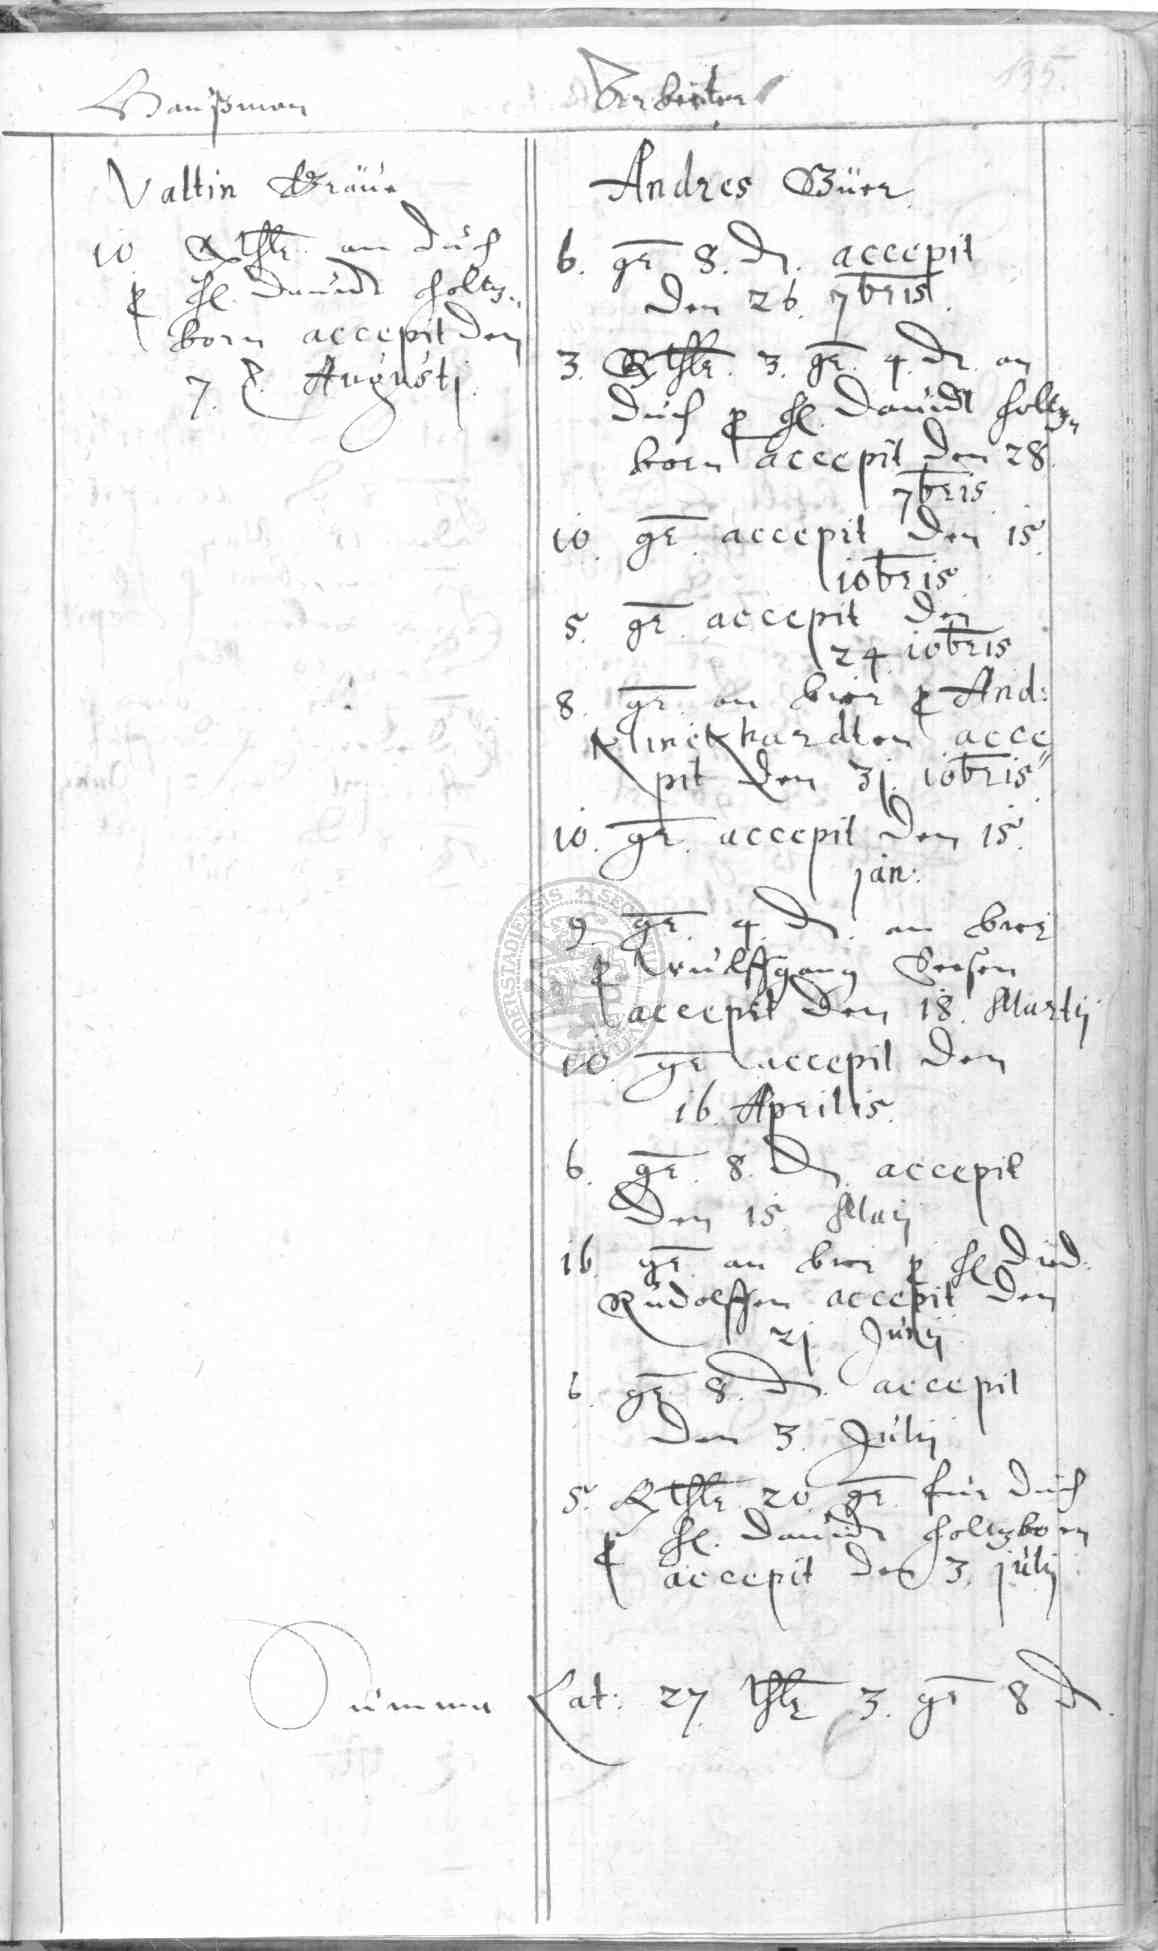 135.
Haußman
Arbeiter
Valtin Gräue
10. Rthlr an duch
p hl. Dauidt Holtz„
born accepit den
7. Augustj
Andres Güer
6. gr 8. d. accepit
den 26. 7bris
3. Rthlr. 3. gr. 4. d. an
duch p hl. Dauidt Holtz„
born accepit den 28
7bris
10. gr. accepit den 15.
10bris
5. gr. accepit den
24 10bris
8. gr. an bier p And:
Klinckhardten acce„
pit den 31. 10bris
10. gr. accepit den 15.
jan:
9. gr. 4. d. an bier
p Wulffgang
accepit den 18. Martij
10. gr accepit den
16. Aprilis.
6. gr. 8. d. accepit
den 15. Maij
16. gr. an bier p hl Died.
Rudolffen accepit den
21 Junij
6. gr 8. d. accepit
den 3. Julij
5. Rthlr 20 gr. für duch
p hl. Dauidt Holtzborn
accepit den 3. julij
Summa Lat: 27 thlr 3. gr 8 d.